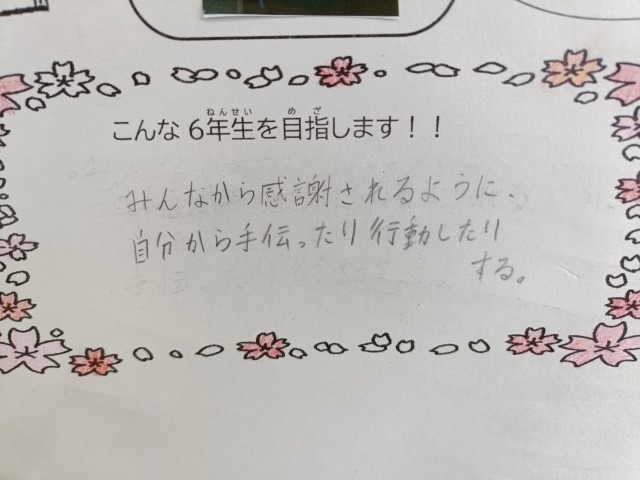 こんな6年生を目指します！！
みんなから感謝されるように、
自分から手伝ったり行動したり
する。